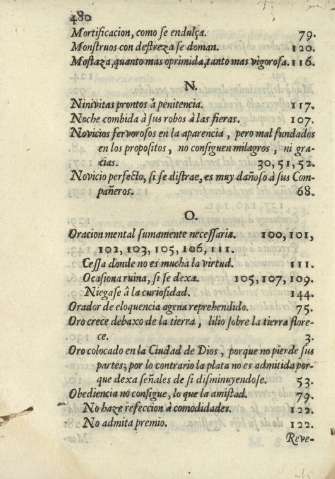 480
Mortificacion, como se endulça. 79.
Monstruos con destreza se doman. 120.
Mostaza, quanto mas oprimida, tanto mas vigorosa. 116.
N.
Ninivitas prontos à penitencia. 117.
Noche combida à sus robos à las fieras. 107.
Novicios fervorosos en la aparencia, pero mal fundados
en los propositos, no consiguen milagros, ni gra-
cias. 30, 51, 52.
Novicio perfecto, si se distrae, es muy dañoso à sus Com-
pañeros. 68.
O.
Oracion mental sumamente necessaria. 100, 101,
102, 103, 105, 106, 111.
Cessa donde no es mucha la virtud. 111.
Ocasiona ruina, si se dexa. 105, 107, 109.
Niegase à la curiosidad. 144.
Orador de eloquencia agena reprehendido. 75.
Oro crece debaxo de la tierra, lilio sobre la tierra flore-
ce. 3.
Oro colocado en la Ciudad de Dios, porque no pierde sus
partes; por lo contrario la plata no es admitida por-
que dexa señales de si disminuyendose. 53.
Obediencia no consigue, lo que la amistad. 79.
No haze refeccion à comodidades. 122.
No admita premio. 122.
Reve-